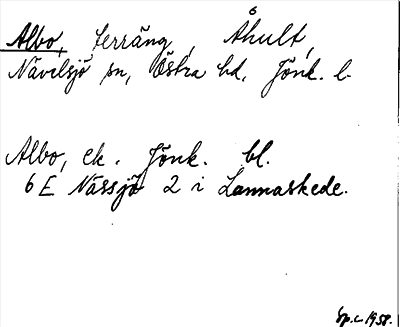 Albo, terräng, Åhult,
Nävelsjö sn, Östra hd, Jönk. l.
Albo, ek. Jönk. bl.
6 E Nässjö 2 i Lannaskede.
Sp. c 1958.